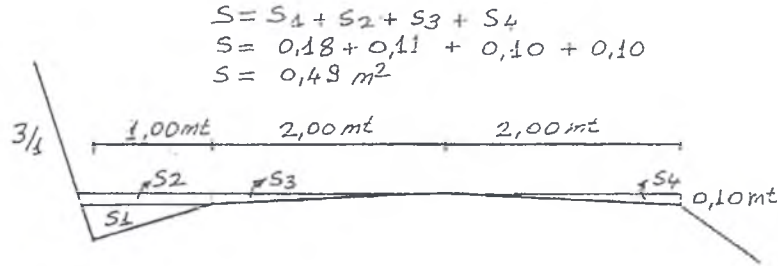 S = S1 + S2 + S3 + S4
S = 0,18 + 0,11 + 0,10 + 0,10
S = 0,49 m²
3/1
1,00mt 2,00mt 2,00mt
S2 S3 S4
0,10mt
S1